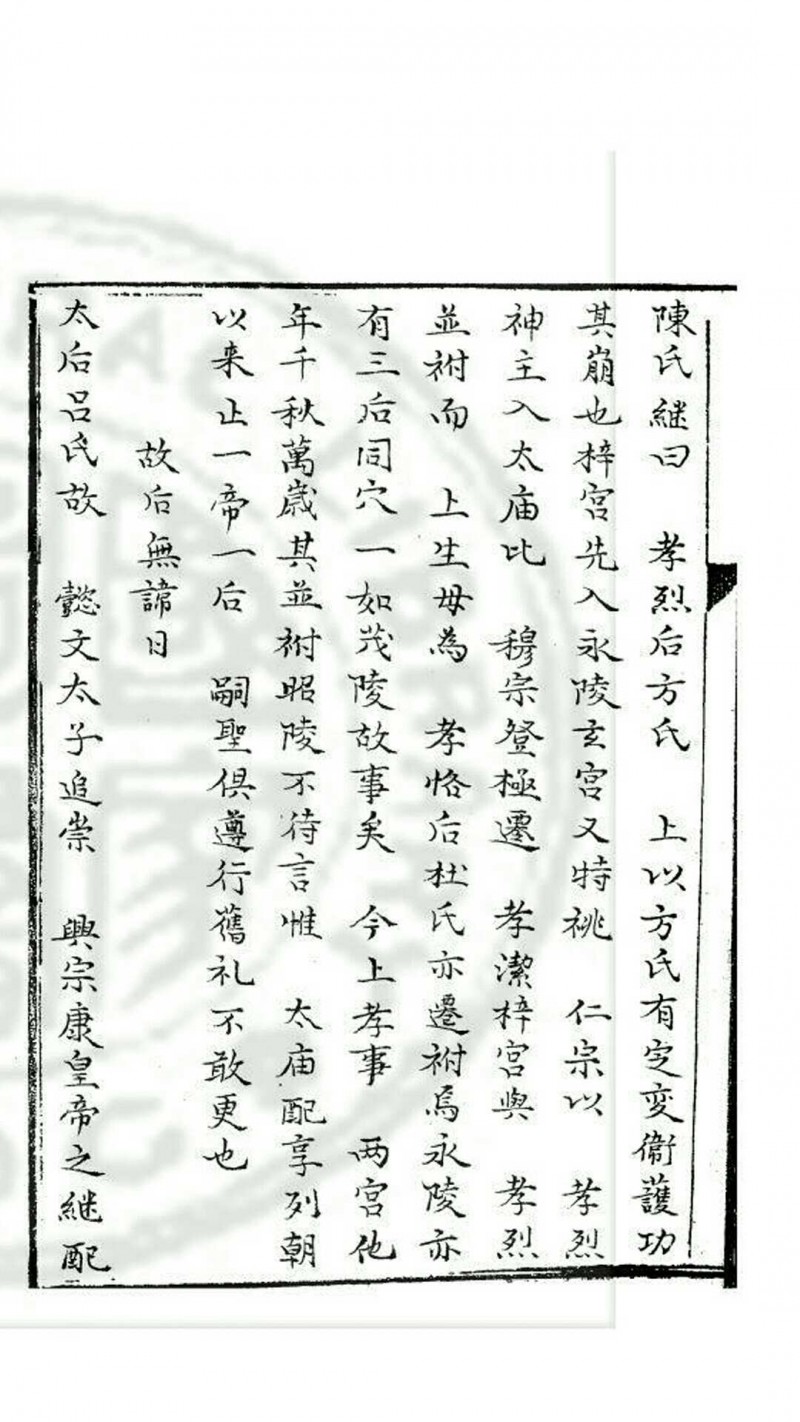 陳氏継曰　孝烈后方氏　上以方氏有定变衞護功
其崩也梓宮先入永陵玄宮又特祧　仁宗以　孝烈
神主入太庙比　穆宗登極遷　孝潔梓宮與　孝烈
並祔而　上生母為　孝恪后杜氏亦遷祔焉永陵亦
有三后同穴一如茂陵故事矣　今上孝事　两宮他
年千秋萬歳其並祔昭陵不待言惟　太庙配享列朝
以来止一帝一后　嗣聖俱遵行舊礼不敢更也
故后無諱日
太后吕氏故　懿文太子追崇　興宗康皇帝之継配